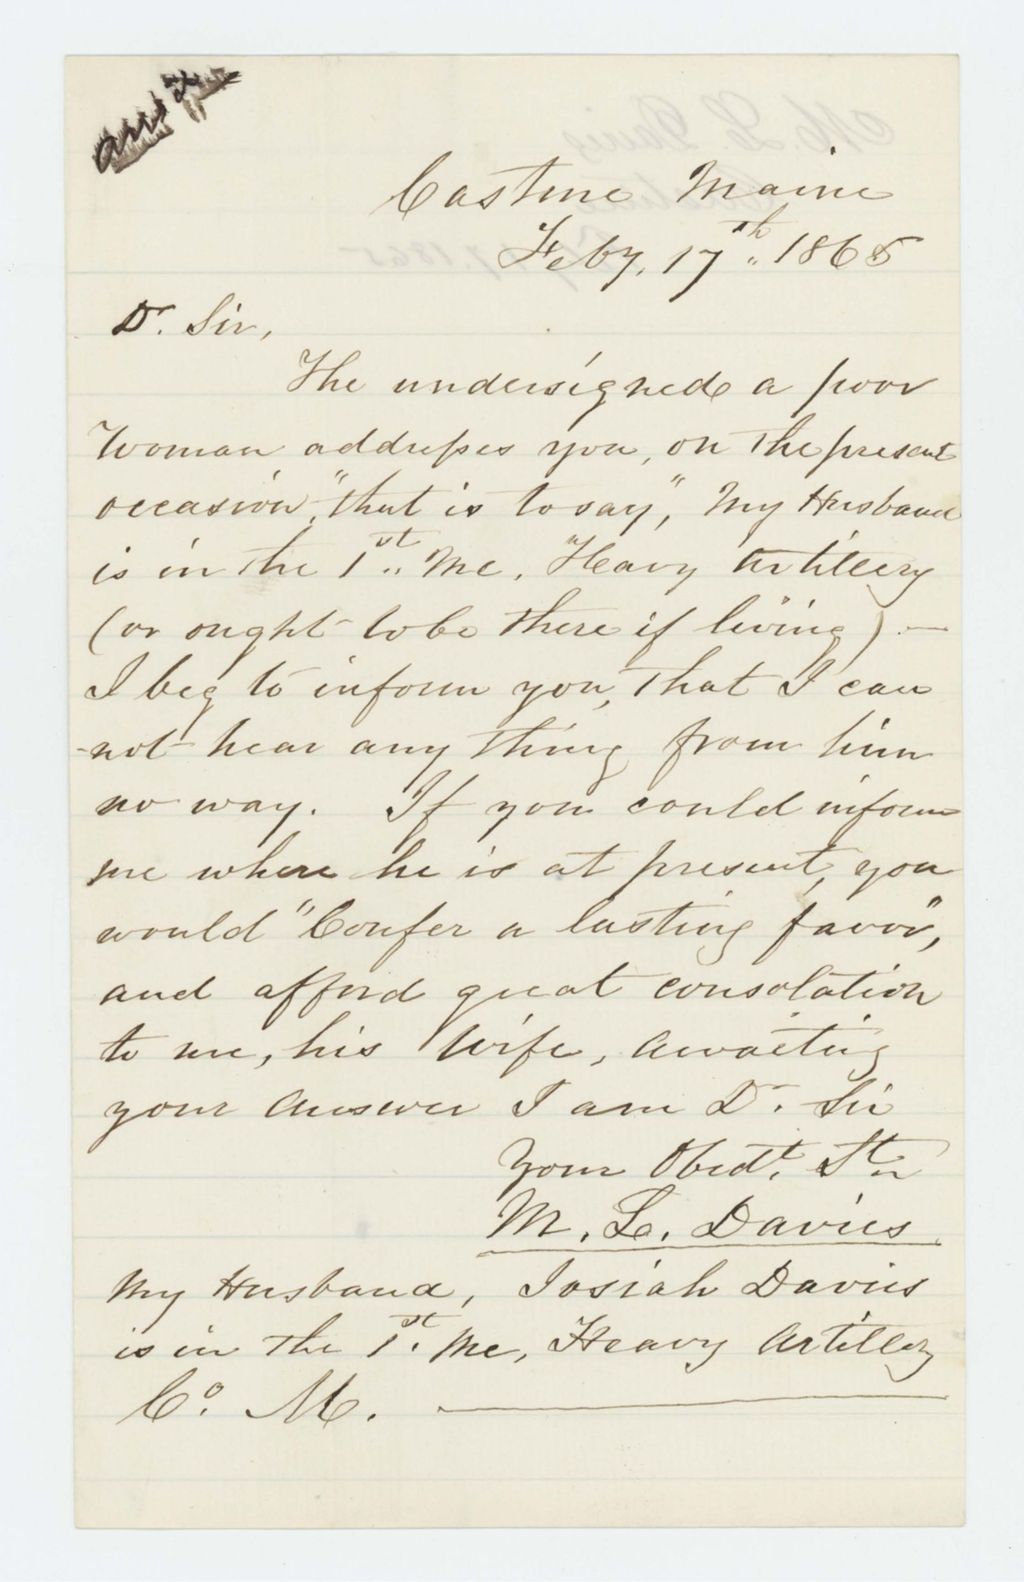 ansd
Castine Maine
Feby, 17th,, 1865
Dr. Sir,
The undersigned a poor
Woman addresses you, on the present
occasion, "that is to say," My Husband
is in the 1st,, Me, Heavy Artillery
(or ought to be there if living) —
I beg to inform you, that I can
not hear any thing from him
no way. If you could inform
me where he is at present, you
would "Confer a lasting favor",
and afford great consolation
to me, his Wife, Awaiting
your Answer I am Dr. Sir
Your Obedt. St
M. L. Davies
My Husband, Josiah Davies
is in the 1st. Me, Heavy Artillery
Co. M. —